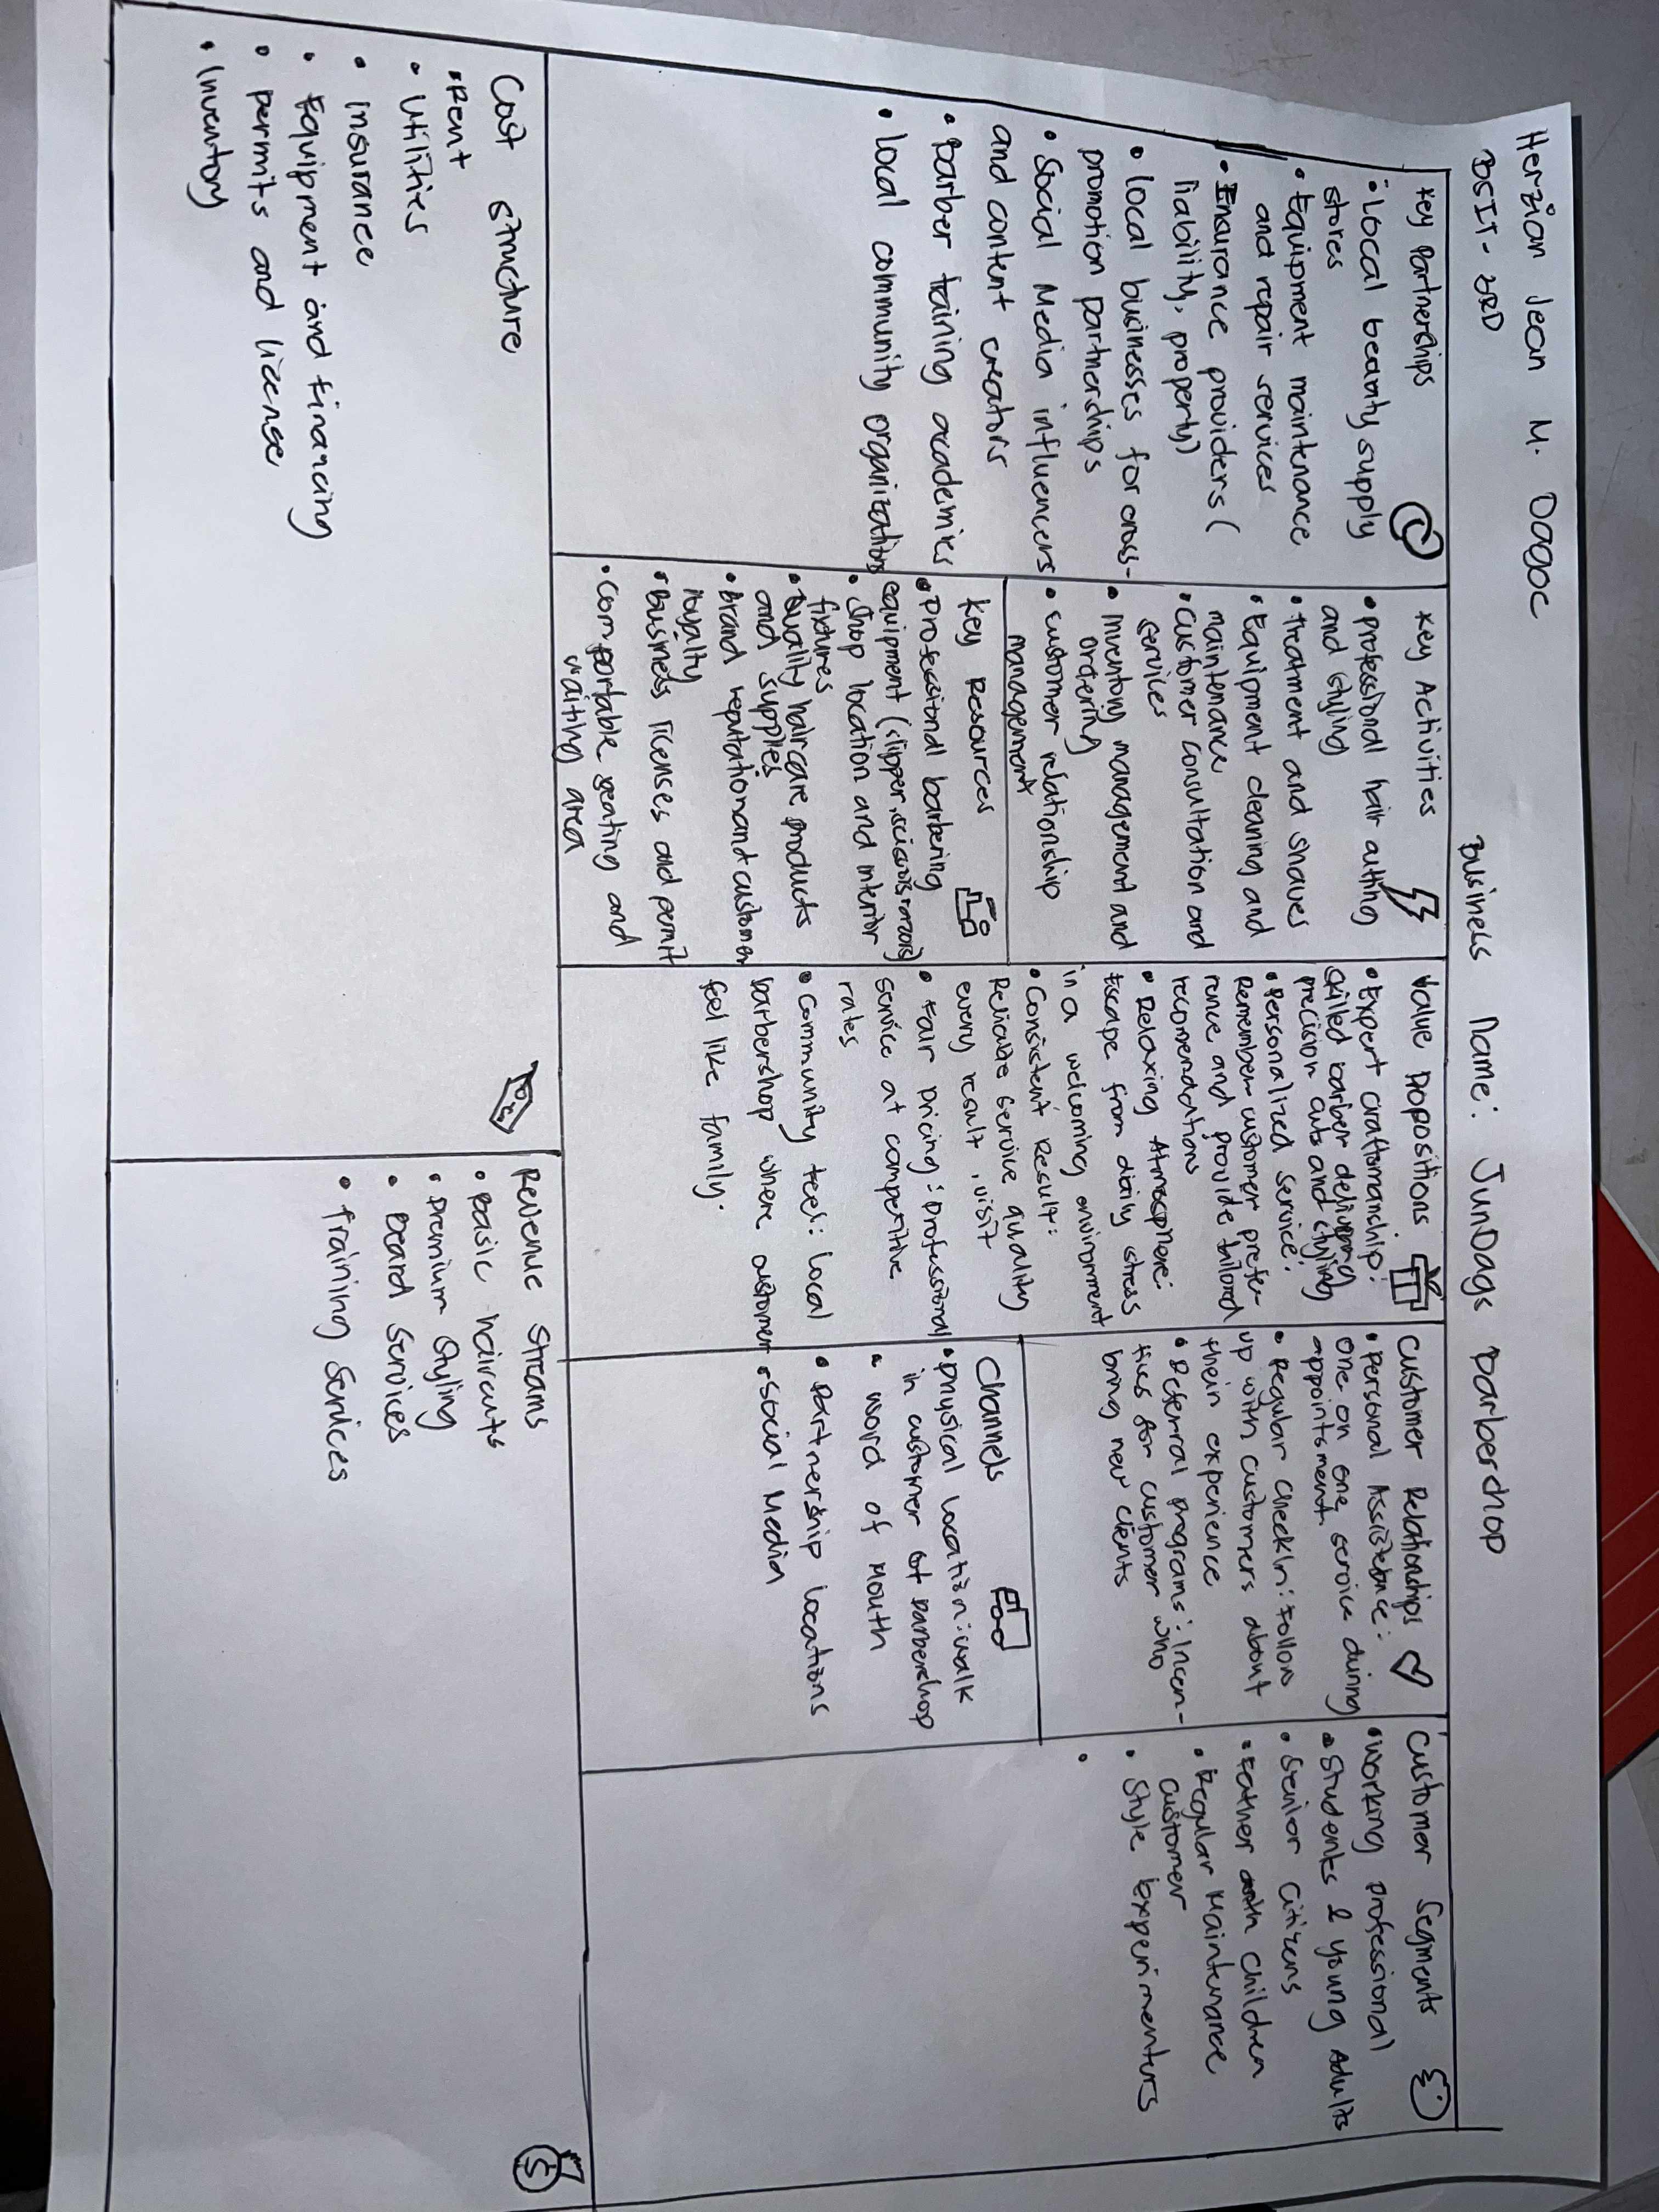 Herzian Jean M. Dagoc
BSIT-3RD
Business Name: JunDags Barbershop
Key Partnerships
• Local beauty supply
stores
• Equipment maintenance
and repair services
• Insurance providers (
liability, property)
• Local businesses for cross-
promotion partnerships
• Social Media influencers
and content creators
• barber training academies
• local community organizations
Key Activities
• professional hair cutting
and styling
• treatment and shaves
• Equipment cleaning and
maintenance
• Customer consultation and
services
• Inventory management and
ordering
• customer relationship
management
Key Resources
• Professional barbering
equipment (slipper, scissors, razors)
• Shop location and interior
fixtures
• Quality haircare products
and supplies
• Brand reputation and customer
loyalty
• Business licenses and permit
• Comportable seating and
waiting area
Value Propositions
• Expert craftsmanship:
skilled barber delivering
precision cuts and styling
• Personalized service:
Remember customer prefe-
rence and provide tailored
recommendations
• Relaxing Atmosphere:
Escape from daily stress
in a welcoming environment
• Consistent Result:
Reliable service quality
every result, visit
• Fair pricing: Professional
service at competitive
rates
• Community feel: Local
barbershop where customer
feel like family.
Customer Relationships
• Personal Assistance:
one on one service during
appointsment
• Regular CheckIn: Follow
up with customers about
their experience
• Referral programs: Incen-
tives for customer who
bring new clients
Channels
• physical location: walk
in customer at barbershop
• word of Mouth
• Partnership locations
• Social Media
Customer Segments
• Working professional
• Students & young Adults
• Senior Citizens
• Father with Children
• Regular Maintenance
Customer
• Style Experimenters
•
Cost structure
• Rent
• Utilities
• insurance
• Equipment and financing
• permits and license
• Inventory
Revenue Streams
• Basic haircuts
• Premium Styling
• Beard Services
• training Services